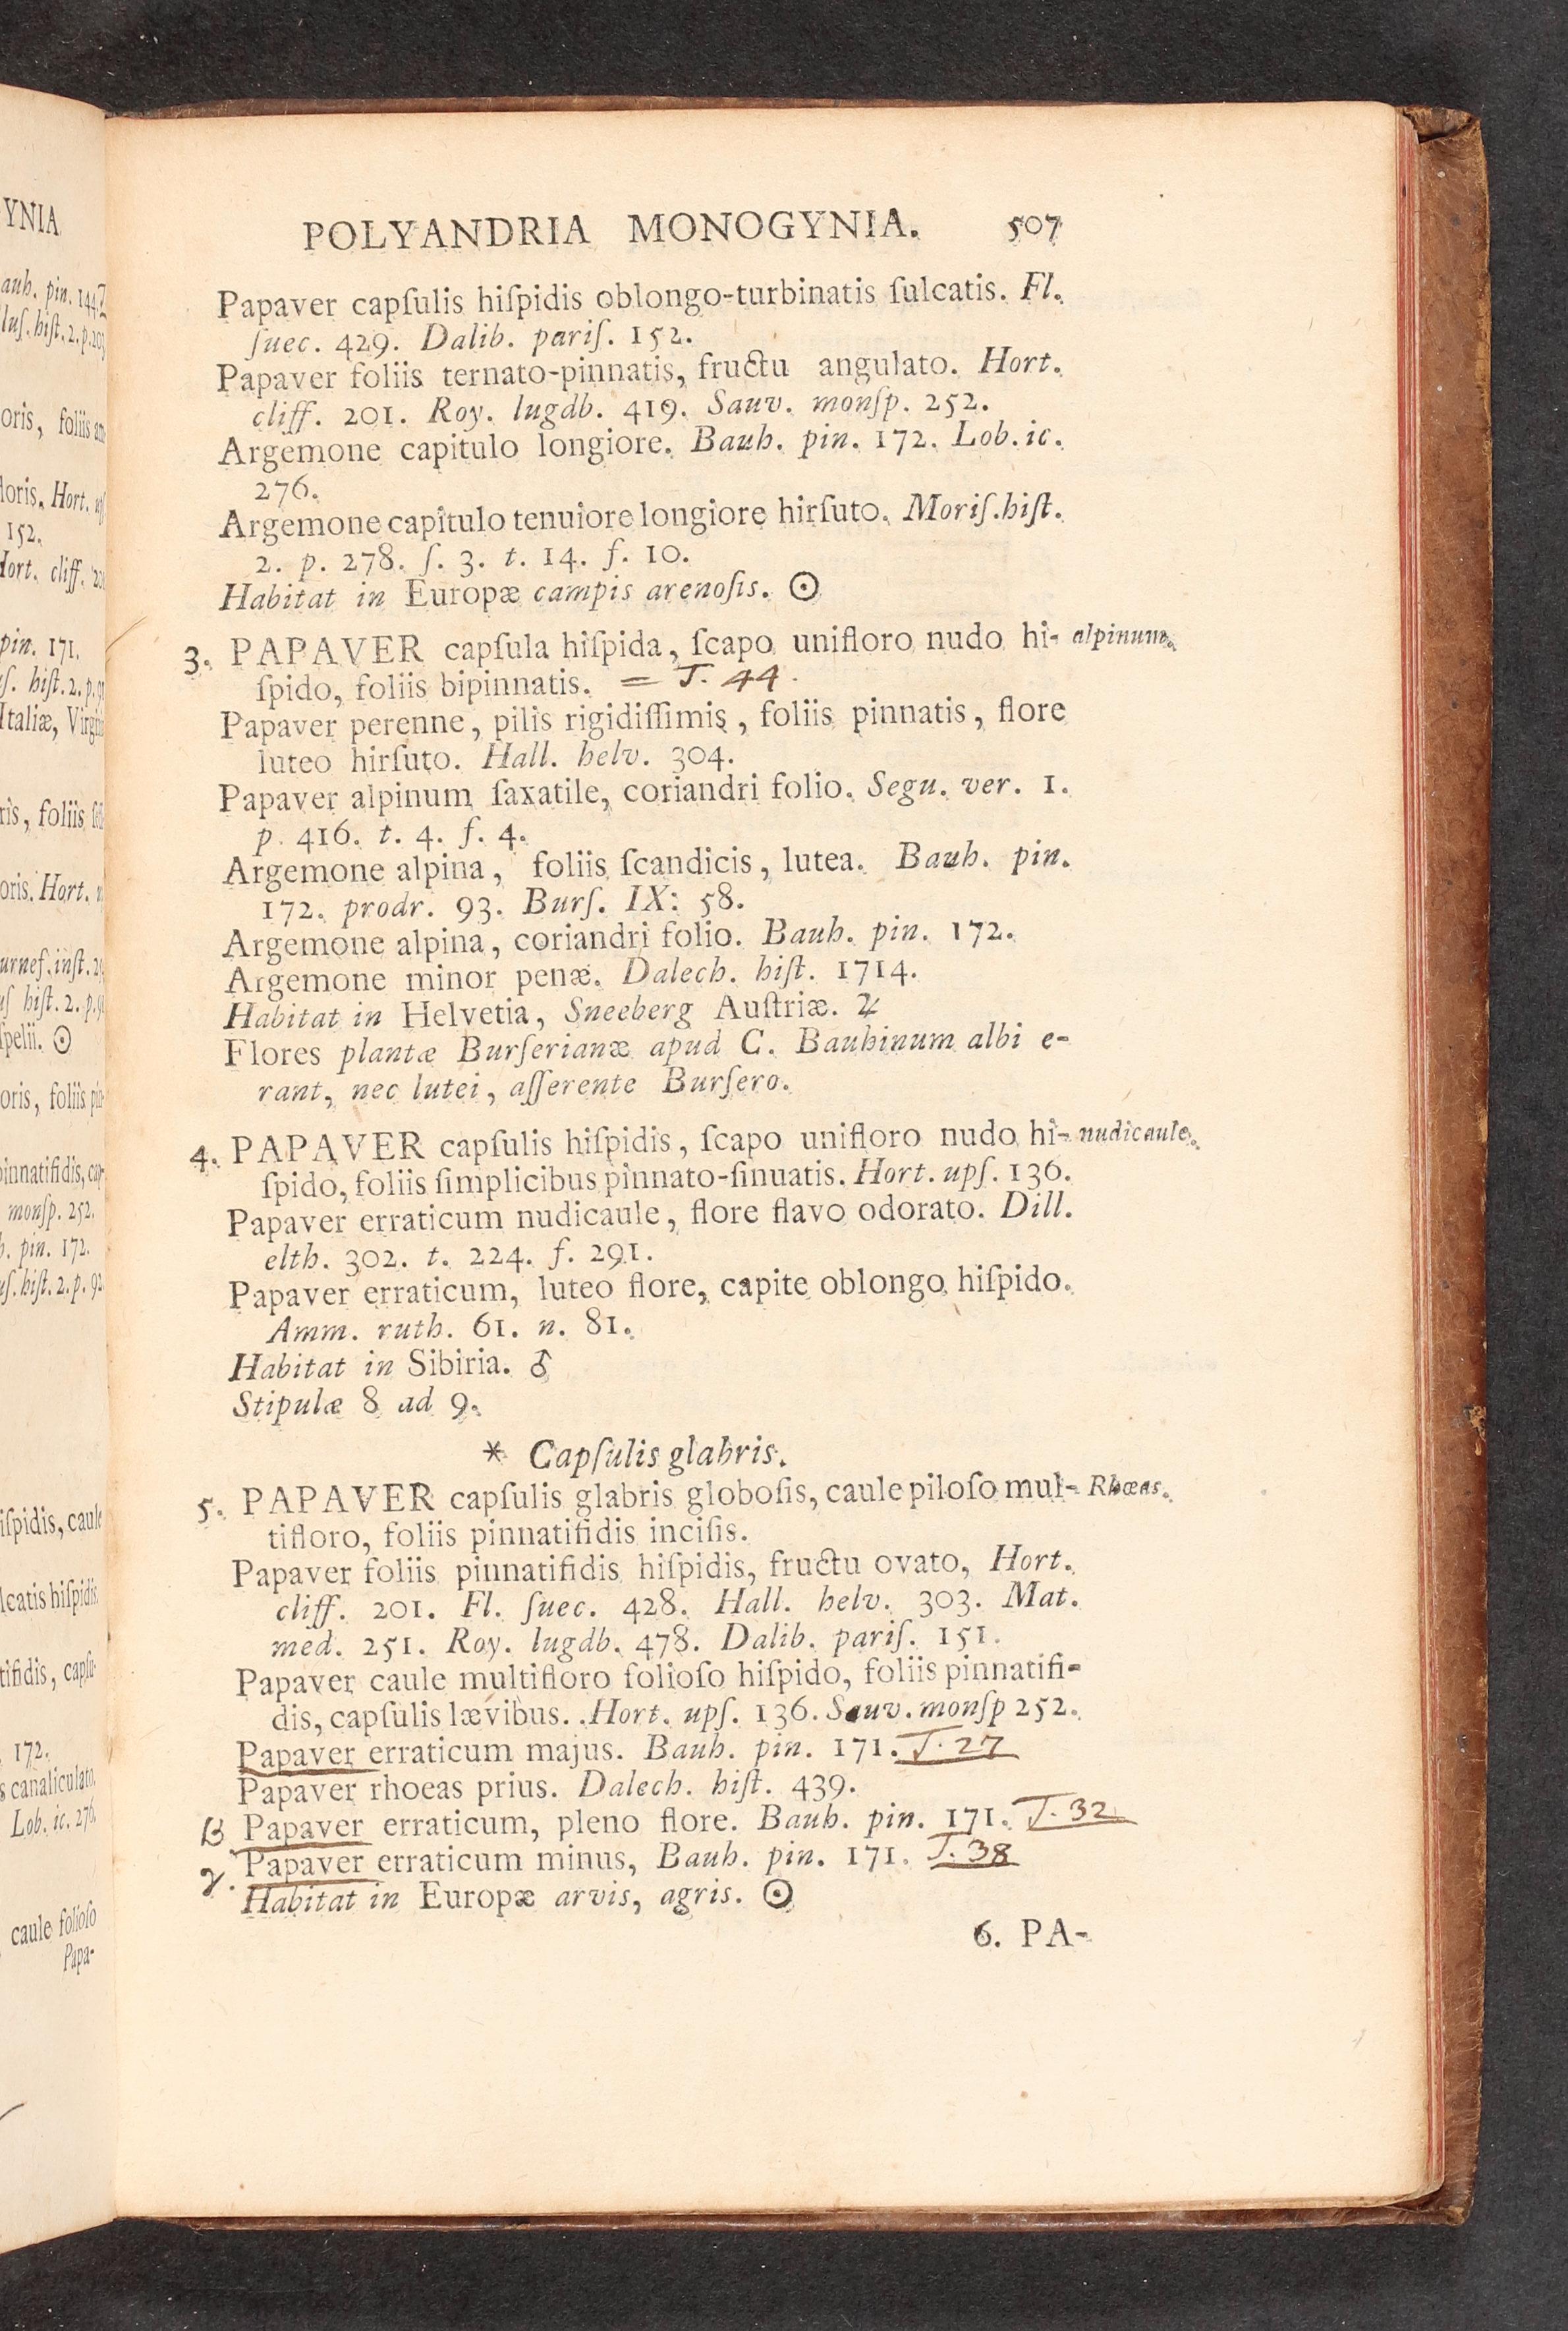 YNIA
auh. pin. 144.
luſ. hiſt. 2. p. 203
oris, foliis am
loris. Hort. upſ
152.
Hort. cliff. 20
pin. 171.
ſ. hiſt. 2. p. 91
Italiæ, Virgin
ris, foliis
oris. Hort. u
urneſ. inſt. 2
uſ hiſt. 2. p. 9
ſpelii. ☉
oris, foliis pin-
pinnatifidis, cap-
monſp. 252.
b. pin. 172.
uſ. hiſt. 2. p. 92.
iſpidis, caule
lcatis hiſpidis.
tifidis, capſu-
172.
s canaliculato.
Lob. ic. 276.
caule folioſo
Papa-
POLYANDRIA MONOGYNIA. 507
Papaver capſulis hiſpidis oblongo-turbinatis ſulcatis. Fl.
ſuec. 429. Dalib. pariſ. 152.
Papaver foliis ternato-pinnatis, fructu angulato. Hort.
cliff. 201. Roy. lugdb. 419. Sauv. monſp. 252.
Argemone capitulo longiore. Bauh. pin. 172. Lob. ic.
276.
Argemone capitulo tenuiore longiore hirſuto. Moriſ. hiſt.
2. p. 278. ſ. 3. t. 14. f. 10.
Habitat in Europæ campis arenoſis. ☉
3. PAPAVER capſula hiſpida, ſcapo unifloro nudo hi- alpinum.
ſpido, foliis bipinnatis. = T. 44.
Papaver perenne, pilis rigidiſſimis, foliis pinnatis, flore
luteo hirſuto. Hall. helv. 304.
Papaver alpinum ſaxatile, coriandri folio. Segu. ver. 1.
p. 416. t. 4. f. 4.
Argemone alpina, foliis ſcandicis, lutea. Bauh. pin.
172. prodr. 93. Burſ. IX: 58.
Argemone alpina, coriandri folio. Bauh. pin. 172.
Argemone minor penæ. Dalech. hiſt. 1714.
Habitat in Helvetia, Sneeberg Auſtriæ. ♃
Flores plantæ Burſerianæ apud C. Bauhinum albi e-
rant, nec lutei, aſſerente Burſero.
4. PAPAVER capſulis hiſpidis, ſcapo unifloro nudo hi- nudicaule.
ſpido, foliis ſimplicibus pinnato-ſinuatis. Hort. upſ. 136.
Papaver erraticum nudicaule, flore flavo odorato. Dill.
elth. 302. t. 224. f. 291.
Papaver erraticum, luteo flore, capite oblongo hiſpido.
Amm. ruth. 61. n. 81.
Habitat in Sibiria. ♂
Stipulæ 8 ad 9.
* Capſulis glabris.
5. PAPAVER capſulis glabris globoſis, caule piloſo mul- Rhœas.
tifloro, foliis pinnatifidis inciſis.
Papaver foliis pinnatifidis hiſpidis, fructu ovato, Hort.
cliff. 201. Fl. ſuec. 428. Hall. helv. 303. Mat.
med. 251. Roy. lugdb. 478. Dalib. pariſ. 151.
Papaver caule multifloro folioſo hiſpido, foliis pinnatifi-
dis, capſulis lævibus. Hort. upſ. 136. Sauv. monſp 252.
Papaver erraticum majus. Bauh. pin. 171. T. 27
Papaver rhoeas prius. Dalech. hiſt. 439.
β Papaver erraticum, pleno flore. Bauh. pin. 171. T. 32
γ. Papaver erraticum minus, Bauh. pin. 171. T. 38
Habitat in Europæ arvis, agris. ☉
6. PA-